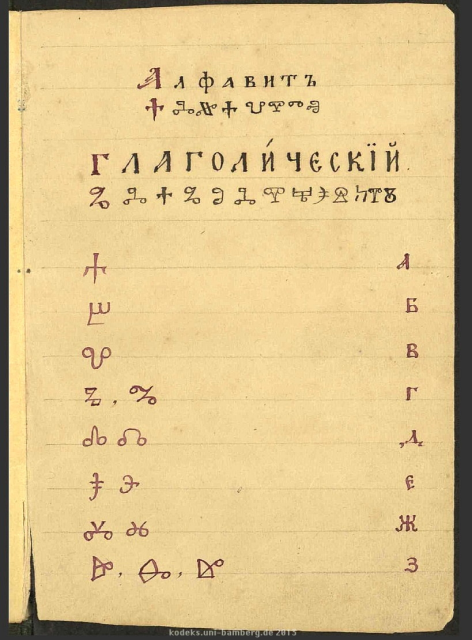 Алфавитъ
ⰰⰾⱇⰰⰲⰹⱅⱏ
Глаголи́ческїй
ⰳⰾⰰⰳⱁⰾⰹⱍⰵⱄⰽⰹⰺ
ⰰ А
ⰱ Б
ⰲ В
ⰳ, ⰳ Г
ⰴ ⰴ Д
ⰵ ⰵ Е
ⰶ ⰶ Ж
ⰸ, ⰸ, ⰸ З
kodeks.uni-bamberg.de 2013